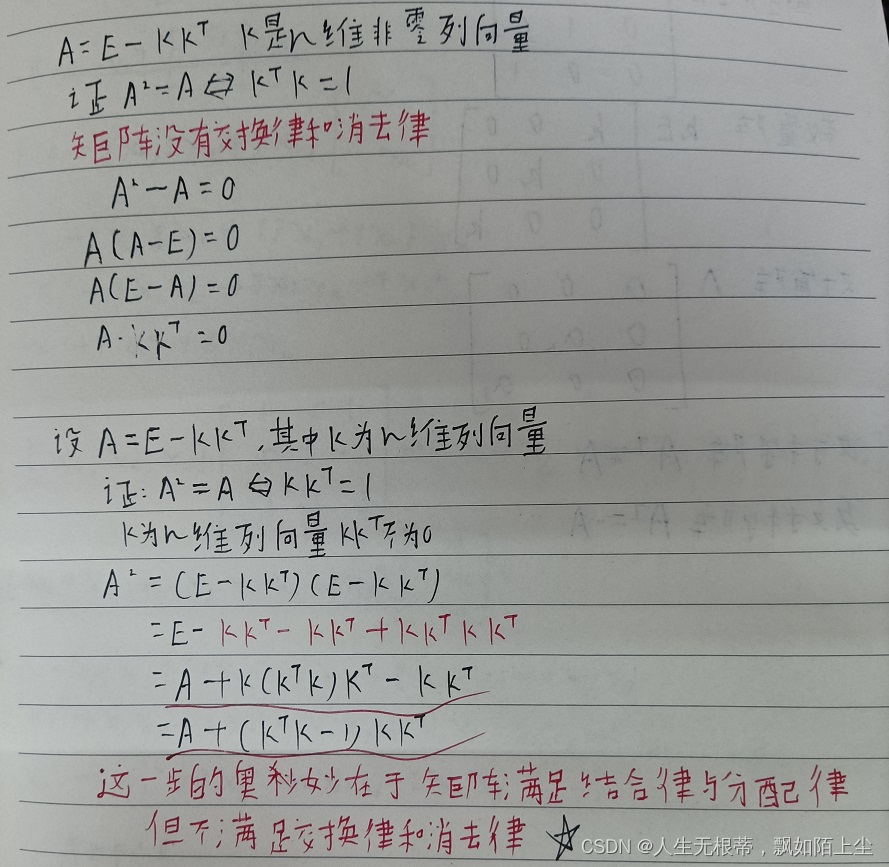 A=E-KKᵀ K是n维非零列向量
证 A²=A⇔KᵀK=1
矩阵没有交换律和消去律
A²-A=0
A(A-E)=0
A(E-A)=0
A·KKᵀ=0
设 A=E-KKᵀ,其中K为n维列向量
证:A²=A⇔KKᵀ=1
K为n维列向量KKᵀ不为0
A²=(E-KKᵀ)(E-KKᵀ)
=E-KKᵀ-KKᵀ+KKᵀKKᵀ
=A+K(KᵀK)Kᵀ-KKᵀ
=A+(KᵀK-1)KKᵀ
这一步的奥秒妙在于矩阵满足结合律与分配律
但不满足交换律和消去律 ☆
CSDN @人生无根蒂,飘如陌上尘